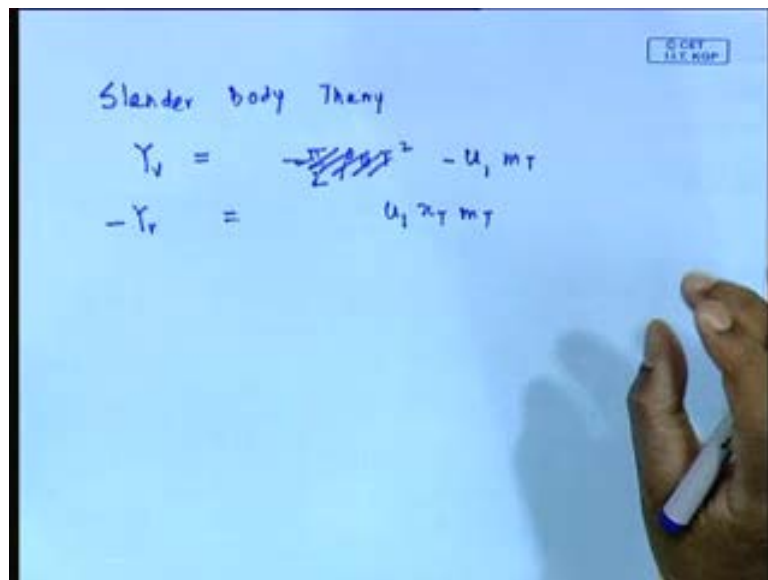 © CET
I.I.T. KGP
Slender Body Theny
Y_v = - u_1 m_T
-Y_r = u_1 x_T m_T